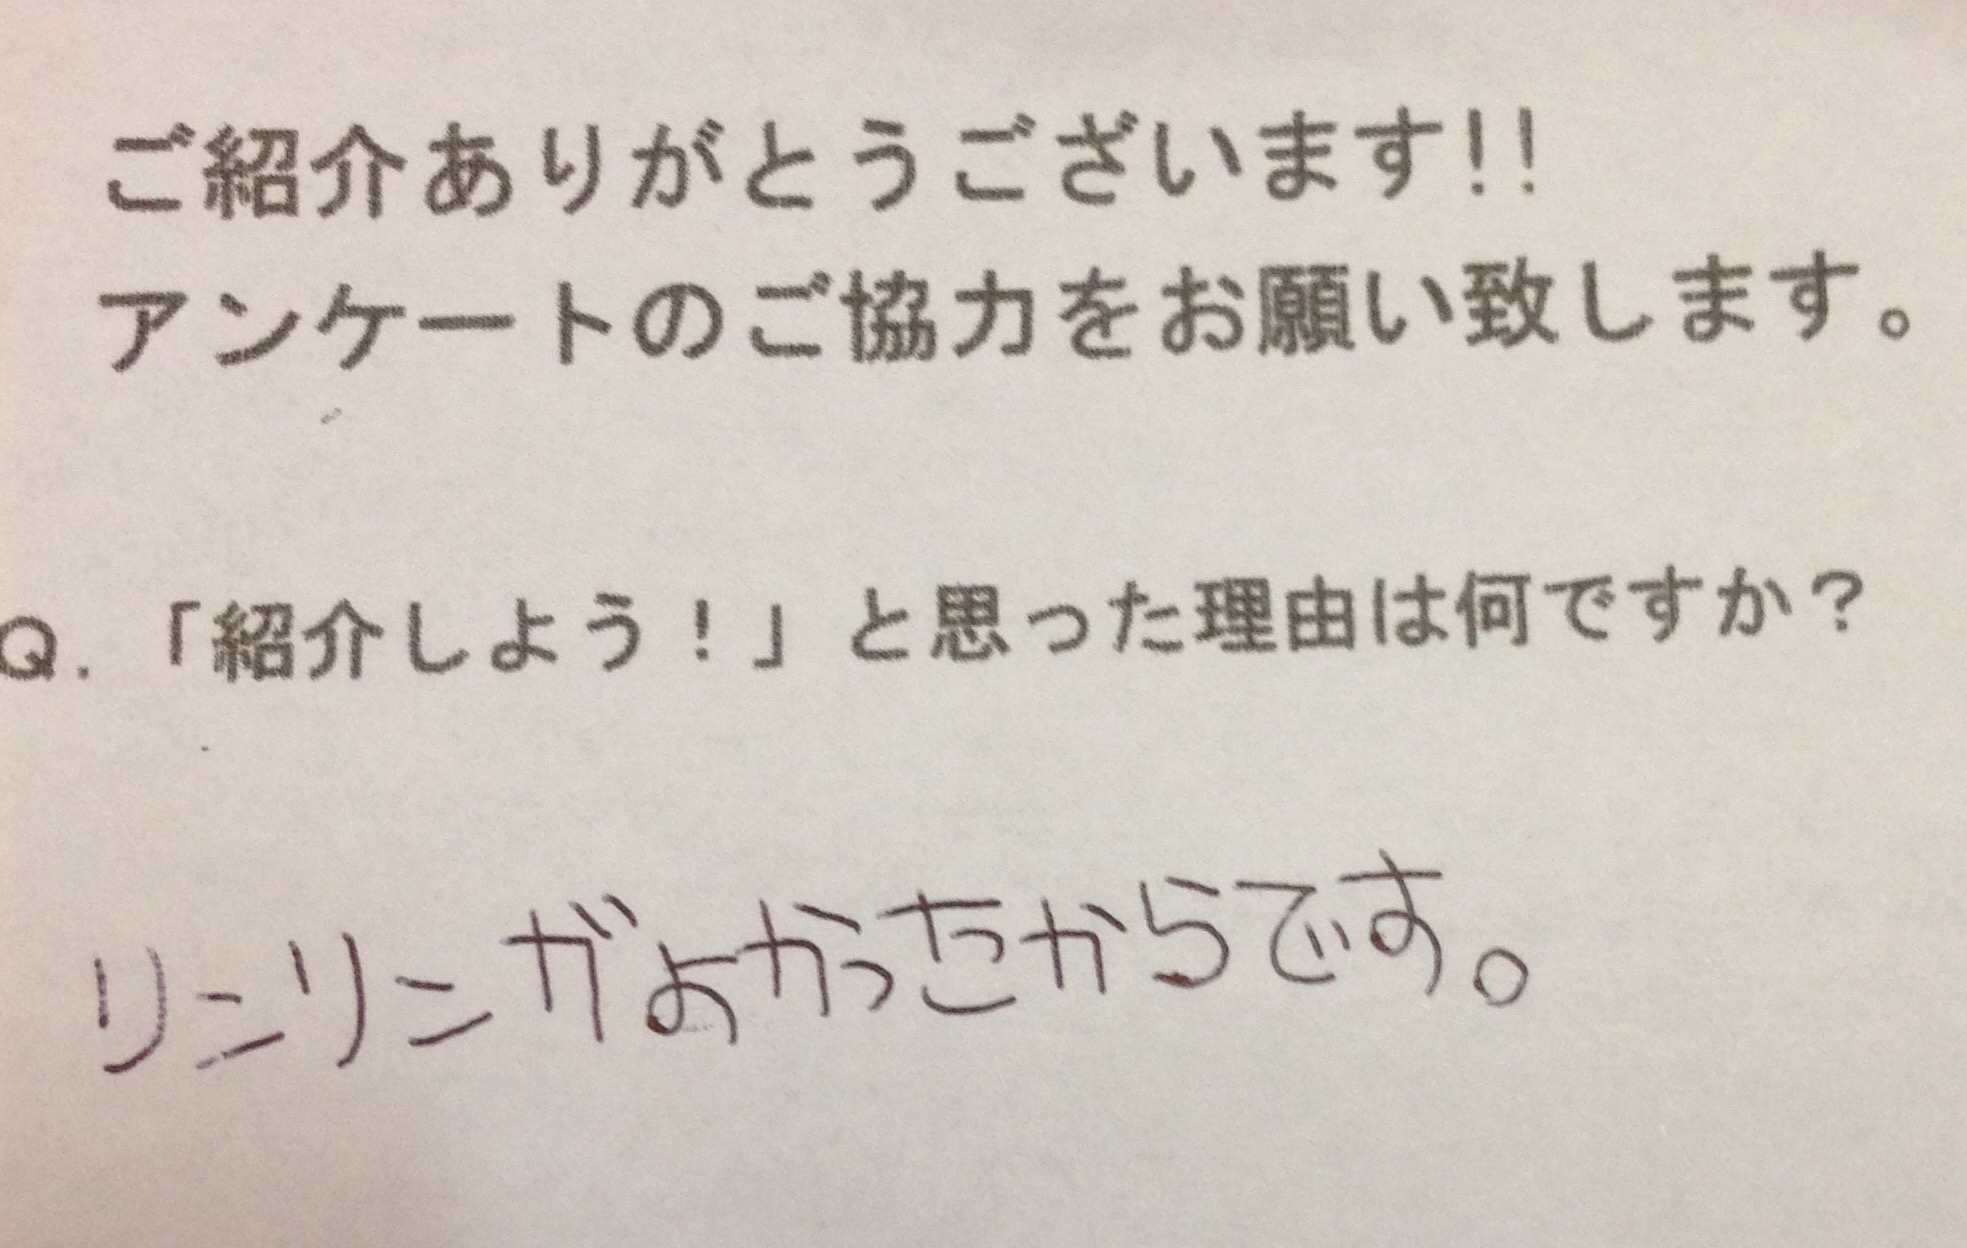 ご紹介ありがとうございます!!
アンケートのご協力をお願い致します。
Q.「紹介しよう!」と思った理由は何ですか?
リンリンがよかったからです。